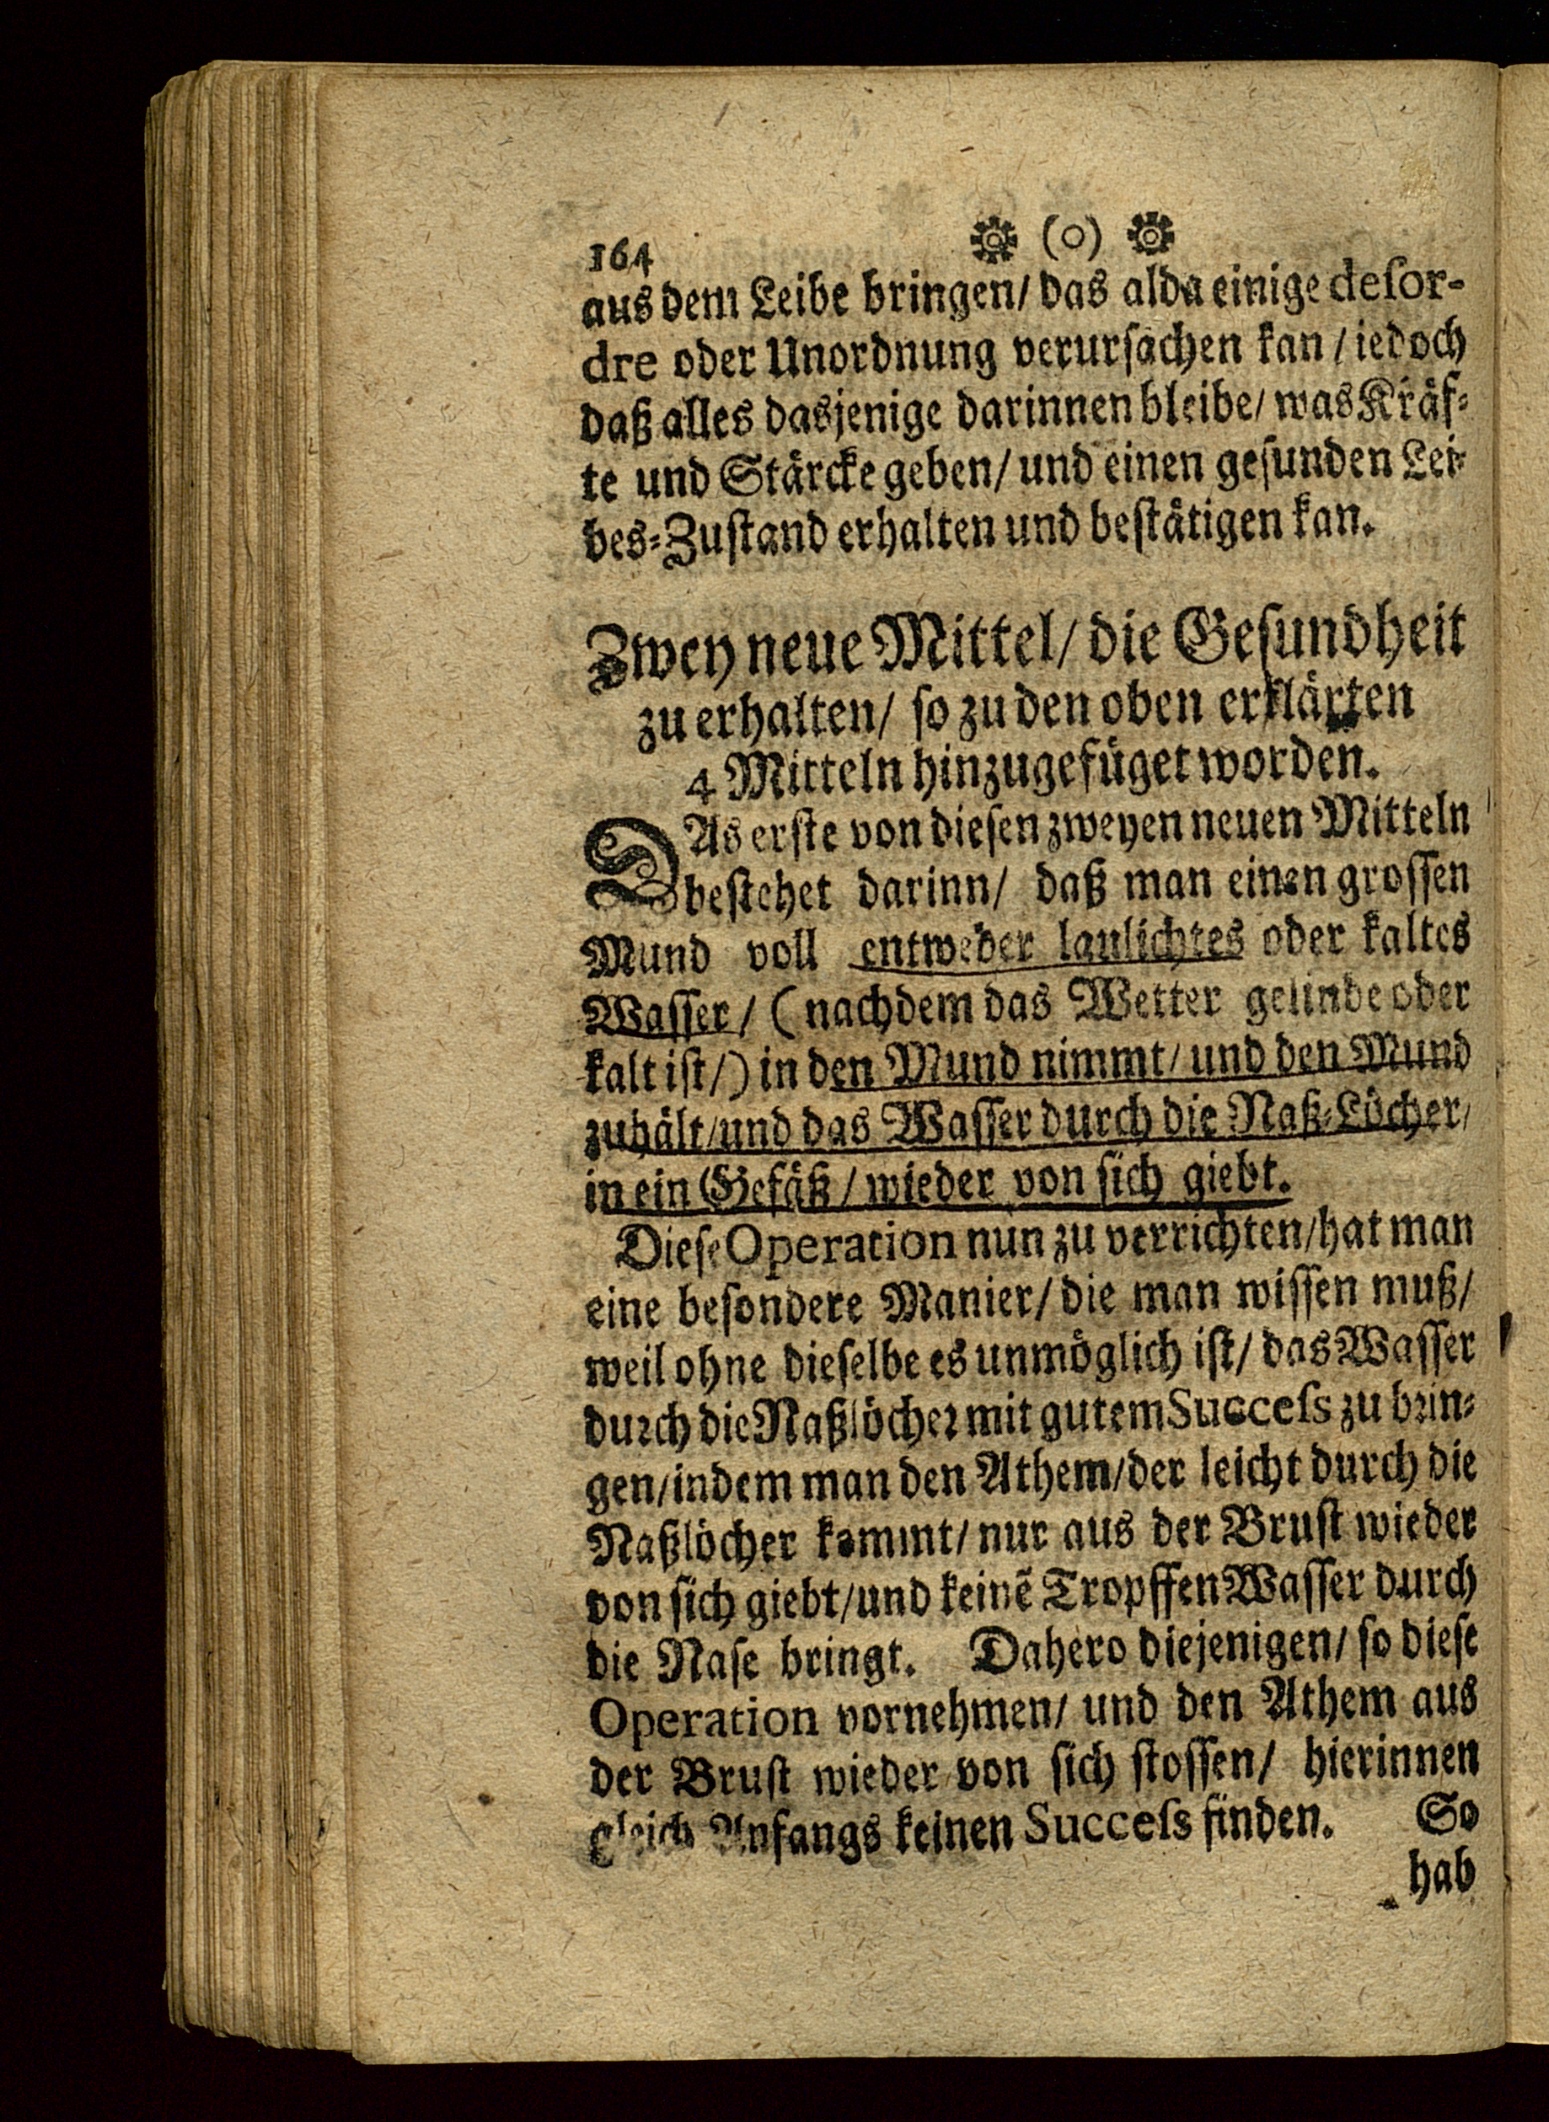 164 (o)
aus dem Leibe bringen/ das alda einige desor-
dre oder Unordnung verursachen kan / iedoch
daß alles dasjenige darinnen bleibe/ was Kräf-
te und Stärcke geben/ und einen gesunden Lei-
bes-Zustand erhalten und bestätigen kan.
Zwey neue Mittel/ die Gesundheit
zu erhalten/ so zu den oben erklärten
4 Mitteln hinzugefüget worden.
DAs erste von diesen zweyen neuen Mitteln
bestehet darinn/ daß man einen grossen
Mund voll entweder laulichtes oder kaltes
Wasser/ (nachdem das Wetter gelinde oder
kalt ist/) in den Mund nimmt/ und den Mund
zuhält/ und das Wasser durch die Naß-Löcher/
in ein Gefäß / wieder von sich giebt.
Diese Operation nun zu verrichten/ hat man
eine besondere Manier/ die man wissen muß/
weil ohne dieselbe es unmöglich ist/ das Wasser
durch die Naßlöcher mit gutem Success zu brin-
gen/ indem man den Athem/ der leicht durch die
Naßlöcher kommt/ nur aus der Brust wieder
von sich giebt/ und keinẽ Tropffen Wasser durch
die Nase bringt. Dahero diejenigen/ so diese
Operation vornehmen/ und den Athem aus
der Brust wieder von sich stossen/ hierinnen
gleich Anfangs keinen Success finden. So
hab